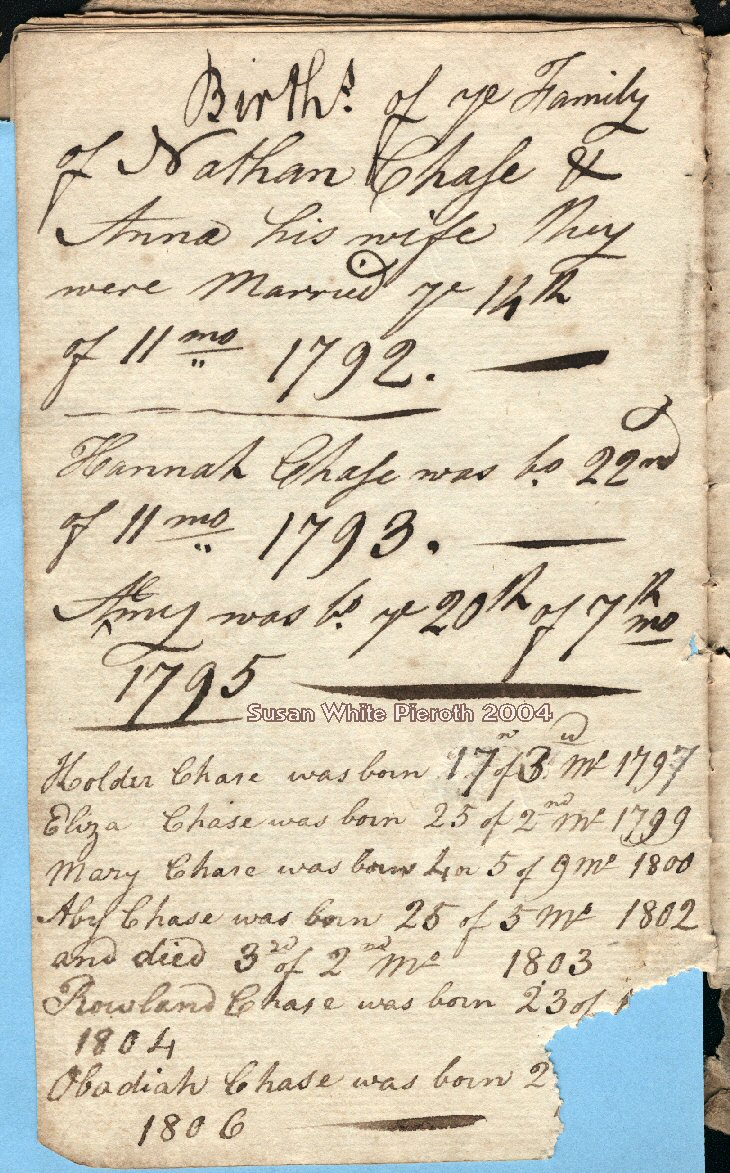 Births of ye Family
of Nathan Chase &
Anna his wife they
were Married ye 14th
of 11 mo 1792.
Hannah Chase was bo. 22nd
of 11 mo 1793.
Amey was bo. ye 20th of 7th mo
1795
Susan White Pieroth 2004
Holder Chase was born 17 of 3rd Mo 1797
Eliza Chase was born 25 of 2nd Mo 1799
Mary Chase was born 5 of 9 Mo 1800
Aby Chase was born 25 of 5 Mo 1802
and died 3rd of 2nd Mo 1803
Rowland Chase was born 23 of
1804
Obadiah Chase was born 2
1806